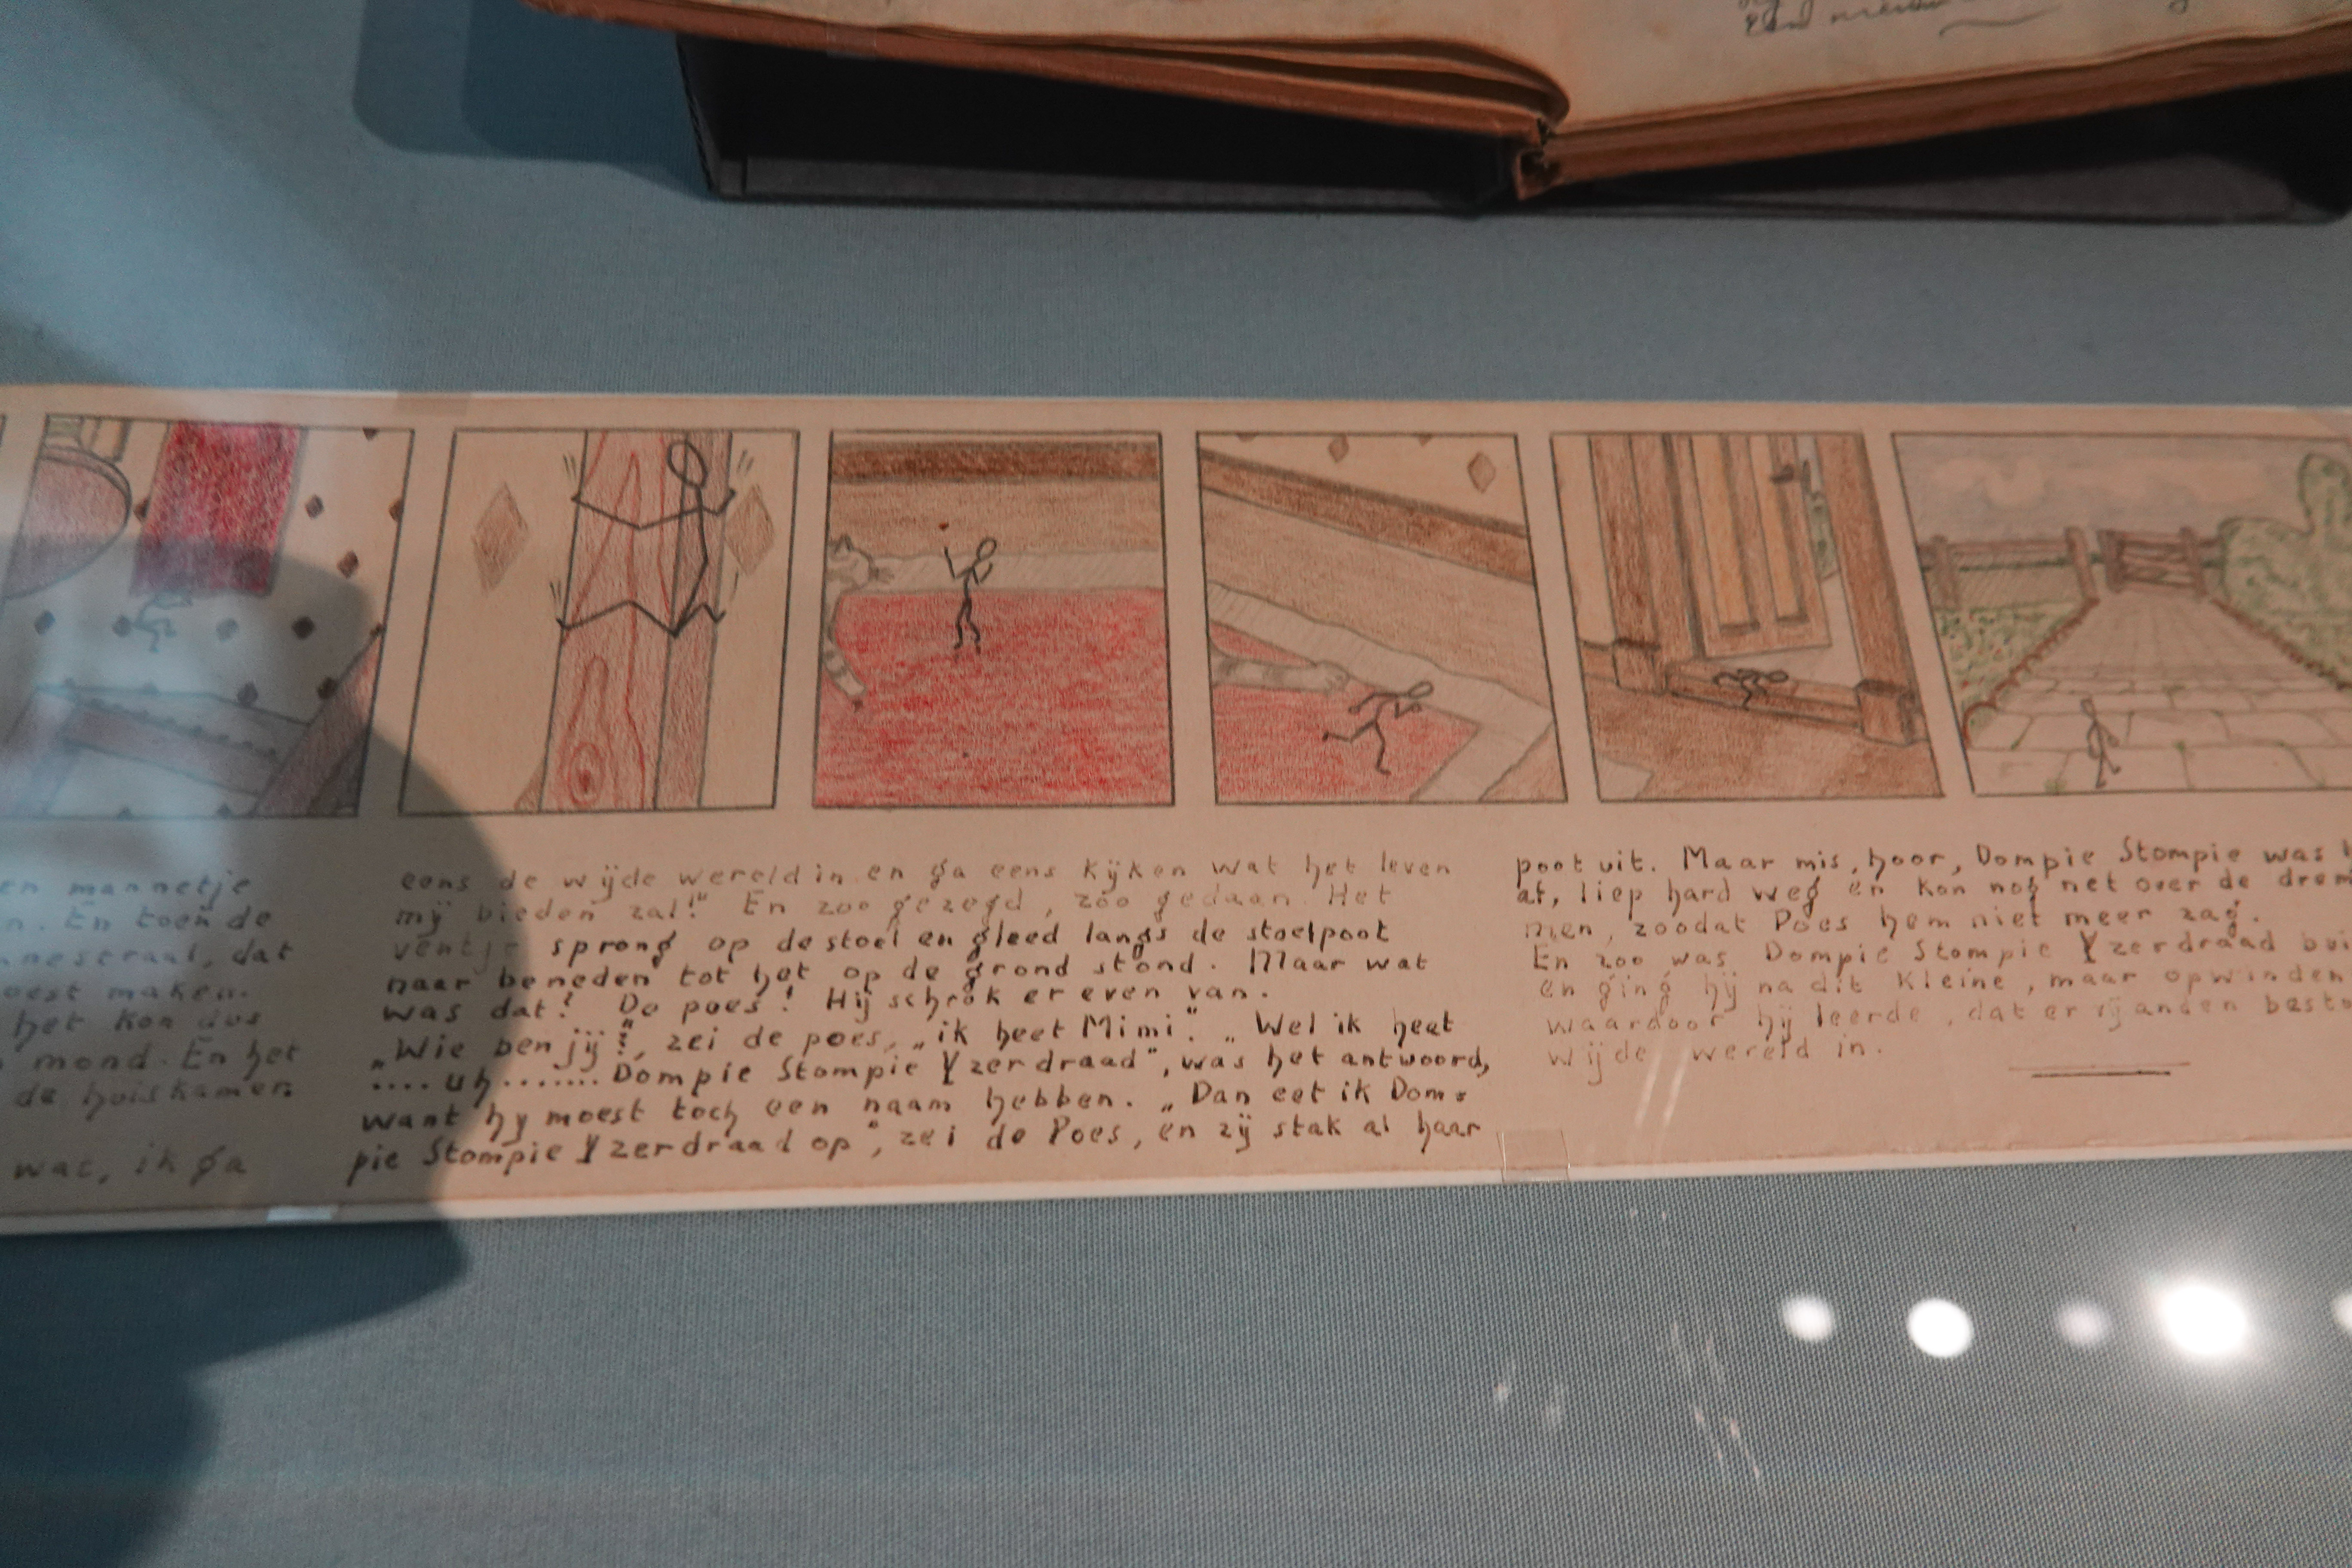 Een
en mannetje
n. En toen de
nnestraal, dat
oest maken.
het kon dus
mond. En het
de huiskamer
wat, ik ga
eens de wijde wereld in en ga eens kijken wat het leven
mij bieden zal!" En zoo gezegd, zoo gedaan. Het
ventje sprong op de stoel en gleed langs de stoelpoot
naar beneden tot het op de grond stond. Maar wat
was dat? De poes! Hij schrok er even van.
„Wie ben jij?", zei de poes, „ik heet Mimi". „Wel ik heet
.... uh....... Dompie Stompie Yzerdraad", was het antwoord,
want hy moest toch een naam hebben. „Dan eet ik Dom=
pie Stompie Yzerdraad op", zei de Poes, en zij stak al haar
poot uit. Maar mis, hoor, Dompie Stompie was
af, liep hard weg en kon nog net over de drem
men, zoodat Poes hem niet meer zag.
En zoo was Dompie Stompie Yzerdraad bui
en ging hij na dit kleine, maar opwinden
waardoor hij leerde, dat er vijanden besto
wijde wereld in.